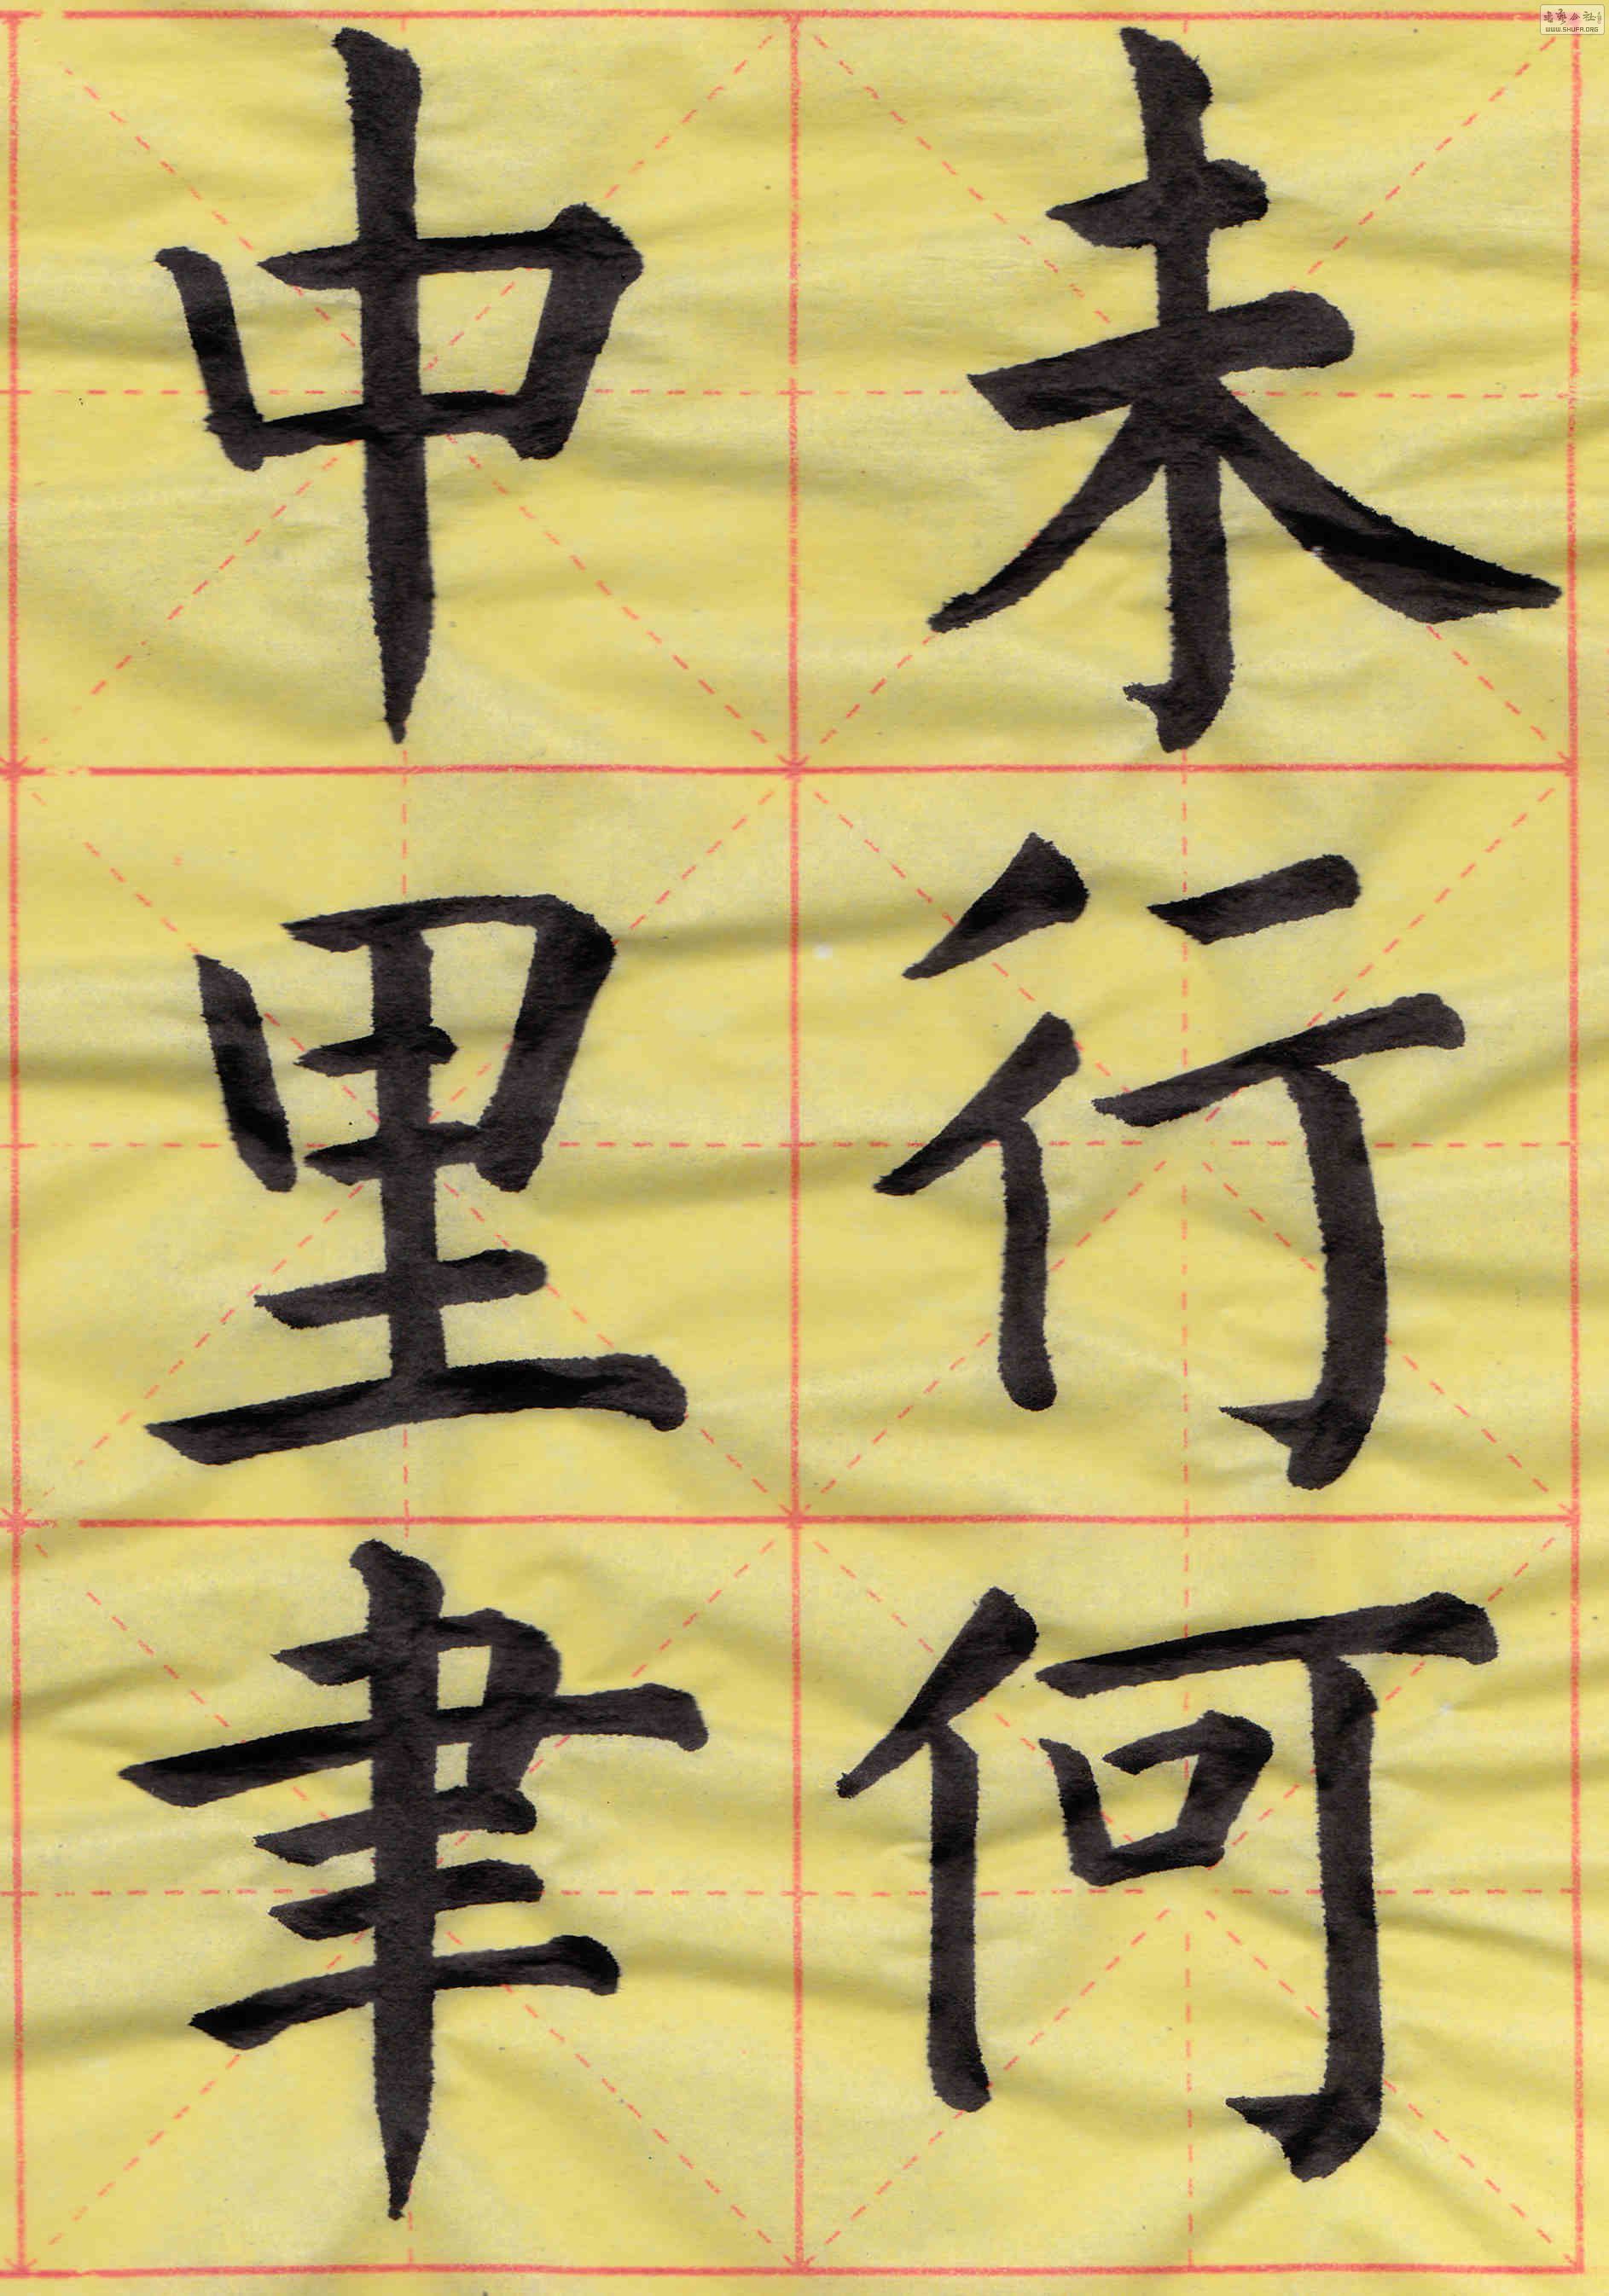 未行何
中里聿
WWW.SHUFA.ORG